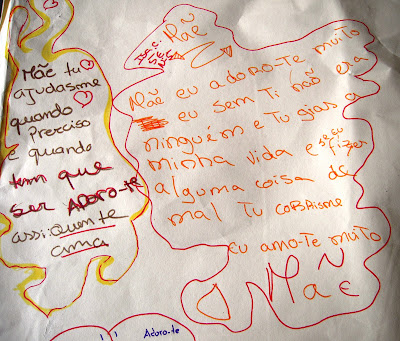 Mãe tu
ajudasme
quando
Prerciso
E quando
tem que
ser ADORO-te
assi:Quem te
ama
Mãe
Mãe eu adoro-te muito
eu sem Ti não era
ninguém e Tu gias a
minha vida e se eu fizer
alguma coisa de
mal Tu coBRAisme
Eu amo-Te muito
Mãe
Adoro-te